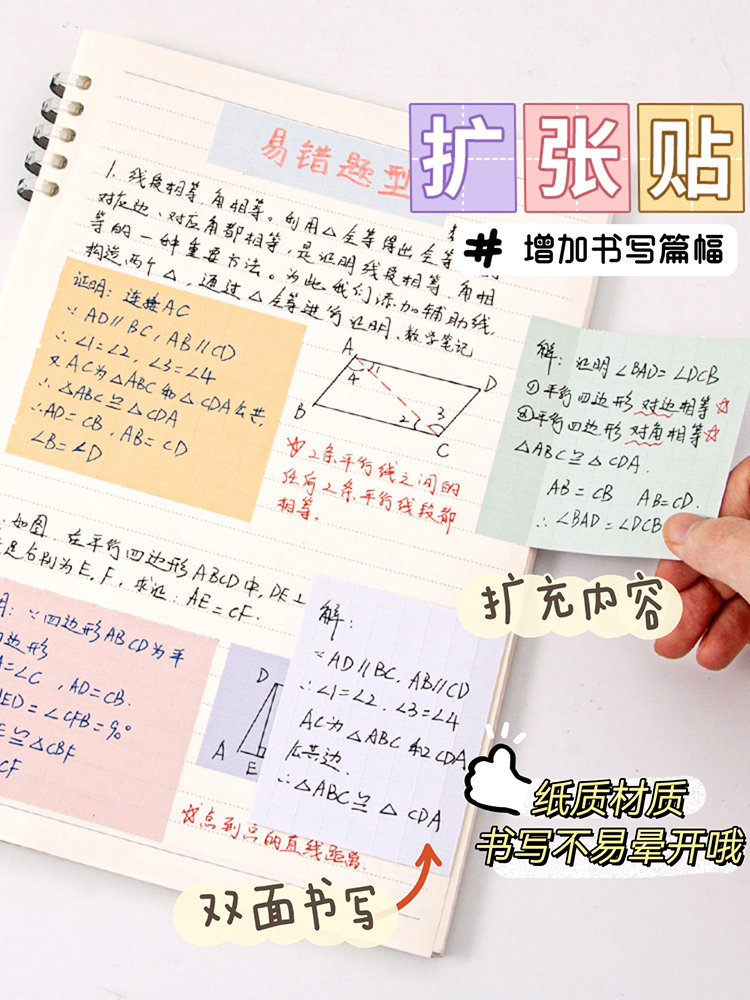 扩张贴
# 增加书写篇幅
易错题型
1. 线段相等,角相等。利用△全等得出全等
对应边、对应角都相等,是证明线段相等、角相
等的一种重要方法。为此我们添加辅助线,
构造两个△,通过△全等进行证明、数学笔记
证明:连接AC
∵AD∥BC, AB∥CD
∴∠1=∠2, ∠3=∠4
又AC为△ABC和△CDA公共,
∴△ABC≌△CDA
∴AD=CB, AB=CD
∠B=∠D
A
D
B
C
1
4
2
3
☆2条平行线之间的
任何2条平行线段都
相等.
解:证明∠BAD=∠DCB
①平行四边形对边相等☆
②平行四边形对角相等☆
△ABC≌△CDA.
AB=CB AB=CD.
∴∠BAD=∠DCB
扩充内容
如图 在平行四边形ABCD中,DE⊥
足分别为E,F, 求证:AE=CF.
明:∵四边形ABCD为平
四边形
A=∠C, AD=CB.
AED=∠CFB=90°
E≌△CBF
CF
D
A
E
解:
∵AD∥BC, AB∥CD
∴∠1=∠2, ∠3=∠4
AC为△ABC和CDA
公共边.
∴△ABC≌△CDA
☆点到点的直线距离.
纸质材质
书写不易晕开哦
双面书写